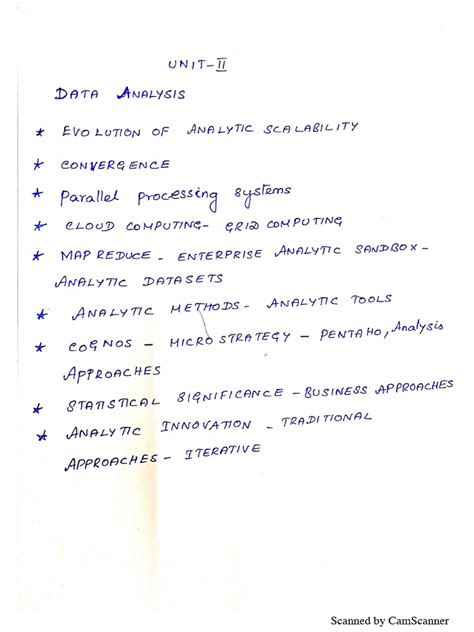 UNIT-II
DATA ANALYSIS
* EVOLUTION OF ANALYTIC SCALABILITY
* CONVERGENCE
* Parallel processing systems
* CLOUD COMPUTING- GRID COMPUTING
* MAP REDUCE - ENTERPRISE ANALYTIC SANDBOX -
ANALYTIC DATASETS
* ANALYTIC METHODS - ANALYTIC TOOLS
* COGNOS - MICROSTRATEGY - PENTAHO, Analysis
APPROACHES
* STATISTICAL SIGNIFICANCE - BUSINESS APPROACHES
* ANALYTIC INNOVATION - TRADITIONAL
APPROACHES - ITERATIVE
Scanned by CamScanner